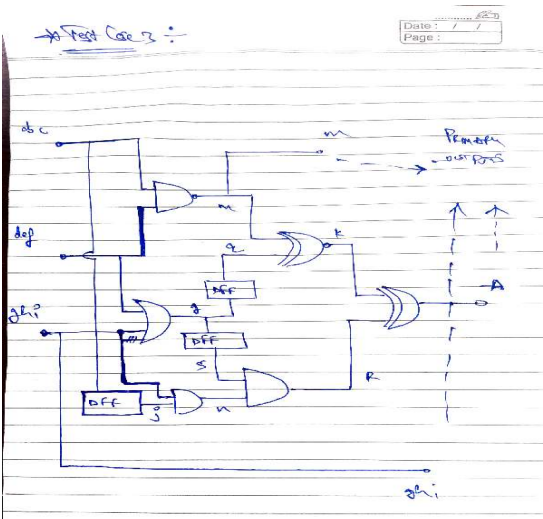 Test Case 3 :-
Date : / /
Page :
abc
m
PRIMARY
OUTPUTS
m
def
k
q
A
DFF
ghi
g
DFF
S
R
DFF
j
n
ghi